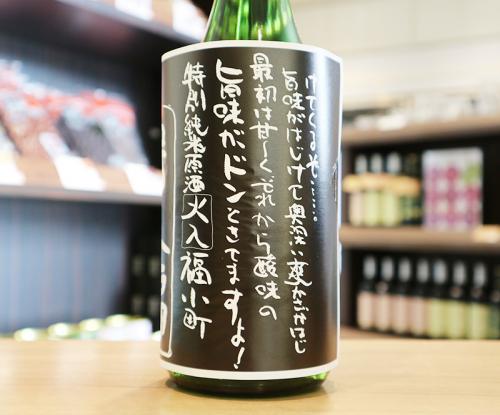 けてくるや……
旨味がはじけて奥深い爽かさがはじ
最初は甘〜くそれから酸味の
旨味がドンときてますよ！
特別純米原酒 火入 福小町